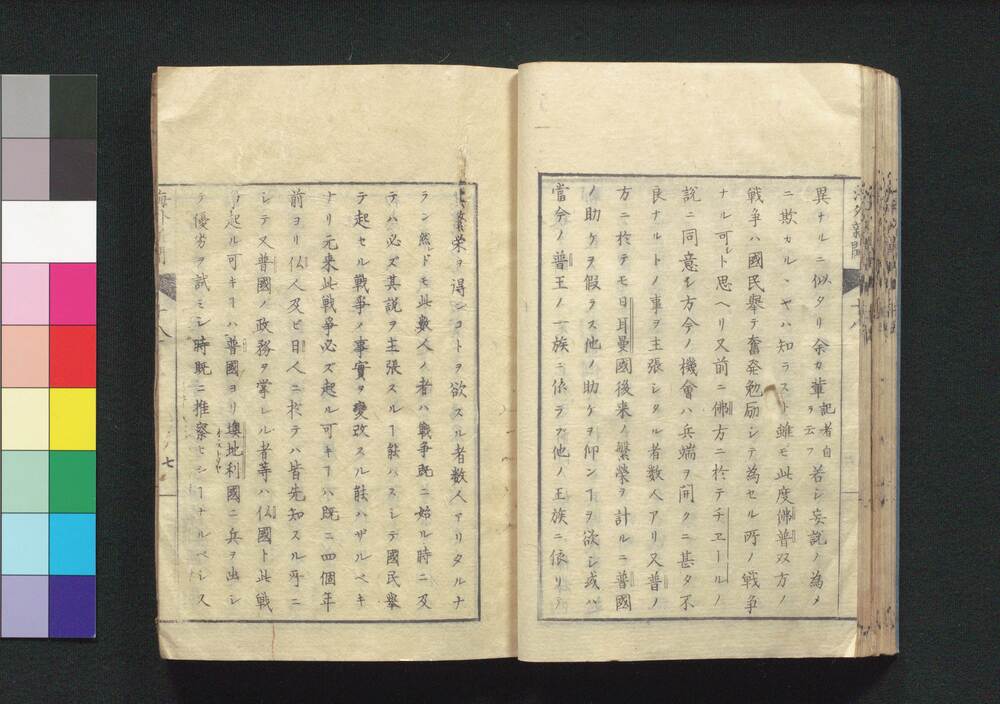 異ナルニ似タリ余カ輩記者自ヲ云フ若シ妄說ノ為メ
ニ欺カルヽヤハ知ラスト雖モ此度佛普双方ノ
戦争ハ國民舉テ奮発勉励シテ為セル所ノ戦争
ナル可シト思ヘリ又前ニ佛方ニ於テチエールノ
說ニ同意シ方今ノ機會ハ兵端ヲ開クニ甚タ不
良ナルトノ事ヲ主張シタル者数人アリ又普ノ
方ニ於テモ日耳曼國後来ノ繁榮ヲ計ルニ普國
ノ助ケヲ假ラス他ノ助ケヲ仰ンヿヲ欲シ或ハ
當今ノ普王ノ一族ニ依ラス他ノ王族ニ依リテ
海外新聞
十八
繁栄ヲ得ンコトヲ欲スル者数人アリタルナ
ラン然レドモ此数人ノ者ハ戦争既ニ始ル時ニ及
テハ必ズ其説ヲ主張スルヿ能ハスシテ國民舉
テ起セル戦爭ノ事實ヲ変改スル能ハザルベキ
ナリ元来此戦爭必ズ起ル可キヿハ既ニ四個年
前ヨリ仏人及ビ日人ニ於テハ皆先知スル所ニ
シテ又普國ノ政務ヲ掌レル者等ハ仏國ト此戦
爭起ル可キヿハ普國ヨリ墺地利國ニ兵ヲ出シ
テ優劣ヲ試ミシ時既ニ推察セシヿナルベシス
海外新聞
十八
七